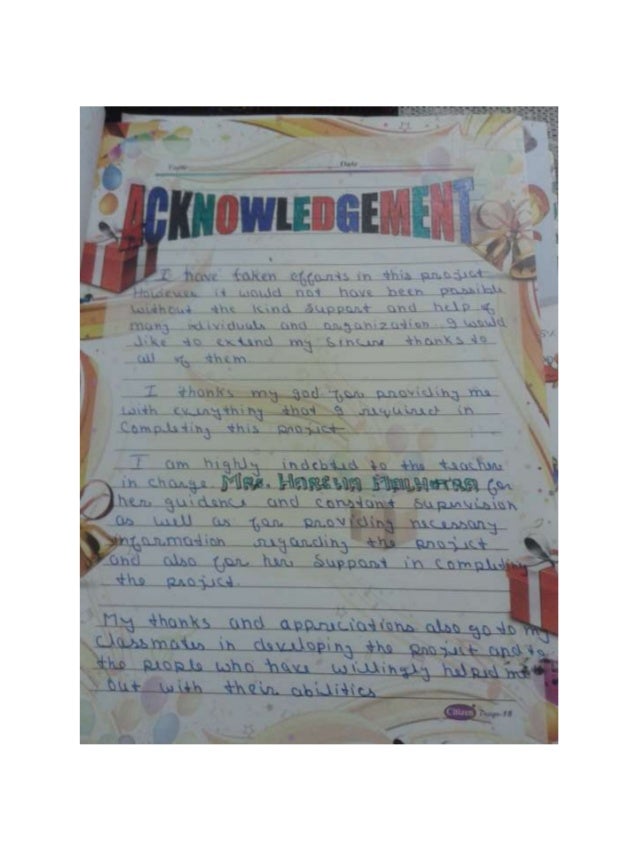 Date
ACKNOWLEDGEMENT
I have taken efforts in this project
However it would not have been possible
without the kind support and help of
many individuals and organization. I would
like to extend my sincere thanks to
all of them.
I thanks my god for providing me
with everything that I required in
completing this project
I am highly indebted to the teacher
in charge Mrs. Malhotra for
her guidence and constant supervision
as well as for providing necessary
information regarding the project
and also for her support in completing
the project.
My thanks and appreciations also go to my
classmates in developing the project and to
the people who have willingly helped me
out with their abilities
Citizen Page-18